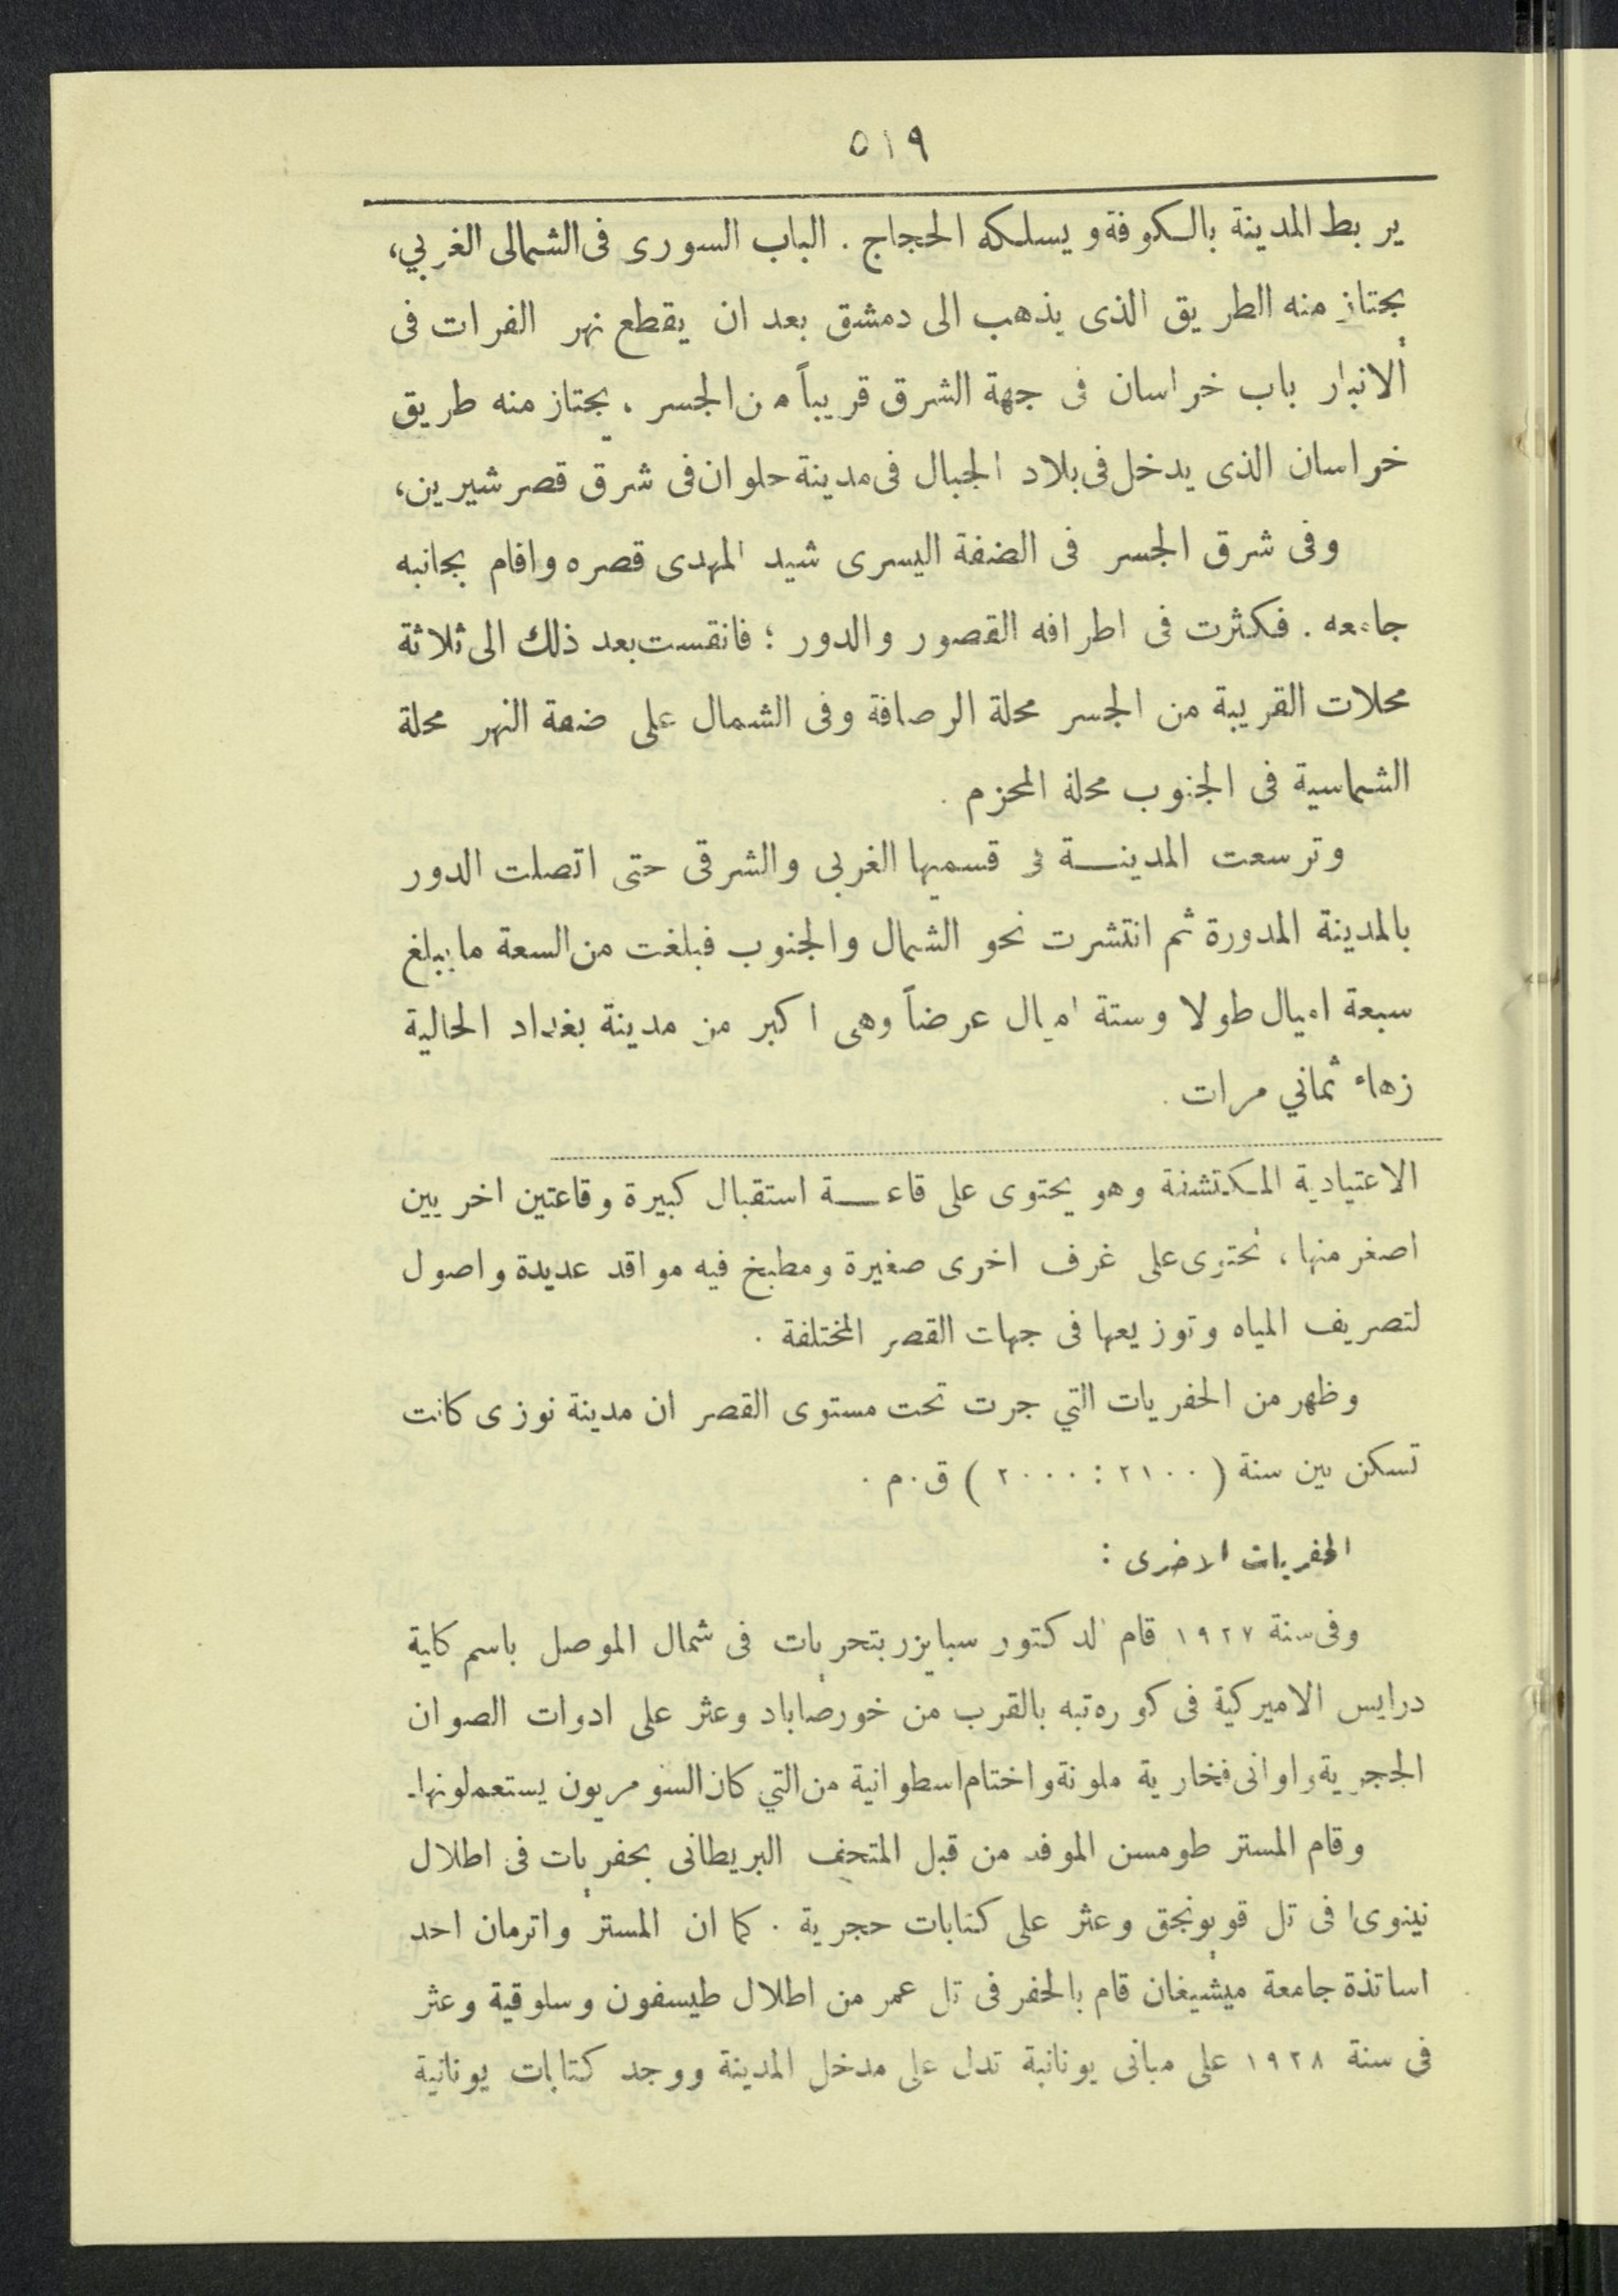 ٥١٩
يربط المدينة بالكوفة ويسلكه الحجاج . الباب السورى فى الشمالى الغربي،
يجتاز منه الطريق الذى يذهب الى دمشق بعد ان يقطع نهر الفرات فى
الانبار باب خراسان فى جهة الشرق قريباً من الجسر . يجتاز منه طريق
خراسان الذى يدخل فى بلاد الجبال فى مدينة حلوان فى شرق قصر شيرين،
وفى شرق الجسر فى الضفة اليسرى شيد المهدى قصره واقام بجانبه
جامعه . فكثرت فى اطرافه القصور والدور ؛ فانقست بعد ذلك الى ثلاثة
محلات القريبة من الجسر محلة الرصافة وفى الشمال على ضفة النهر محلة
الشماسية فى الجنوب محلة المخزم .
وترسعت المدينة فى قسميها الغربى والشرقى حتى اتصلت الدور
بالمدينة المدورة ثم انتشرت نحو الشمال والجنوب فبلغت من السعة ما يبلغ
سبعة اميال طولا وستة اميال عرضاً وهى اكبر من مدينة بغداد الحالية
زهاء ثماني مرات .
الاعتيادية المكتشفة وهو يحتوى على قاعة استقبال كبيرة وقاعتين اخريين
اصغر منها ، تحتوى على غرف اخرى صغيرة ومطبخ فيه مواقد عديدة واصول
لتصريف المياه وتوزيعها فى جهات القصر المختلفة .
وظهر من الحفريات التي جرت تحت مستوى القصر ان مدينة نوزى كانت
تسكن بين سنة ( ٢١٠٠ : ٢٠٠٠ ) ق . م .
الحفريات الاخرى :
وفى سنة ١٩٢٧ قام الدكتور سبايزر بتحريات فى شمال الموصل باسم كلية
درايس الاميركية فى كوره تبه بالقرب من خورصاباد وعثر على ادوات الصوان
الحجرية واوانى فخارية ملونة واختام اسطوانية من التي كان السومريون يستعملونها.
وقام المستر طومسن الموفد من قبل المتحف البريطانى بحفريات فى اطلال
نينوى فى تل قويونجق وعثر على كتابات حجرية . كما ان المستر واترمان احد
اساتذة جامعة ميشيغان قام بالحفر فى تل عمر من اطلال طيسفون وسلوقية وعثر
فى سنة ١٩٢٨ على مبانى يونانية تدل على مدخل المدينة ووجد كتابات يونانية